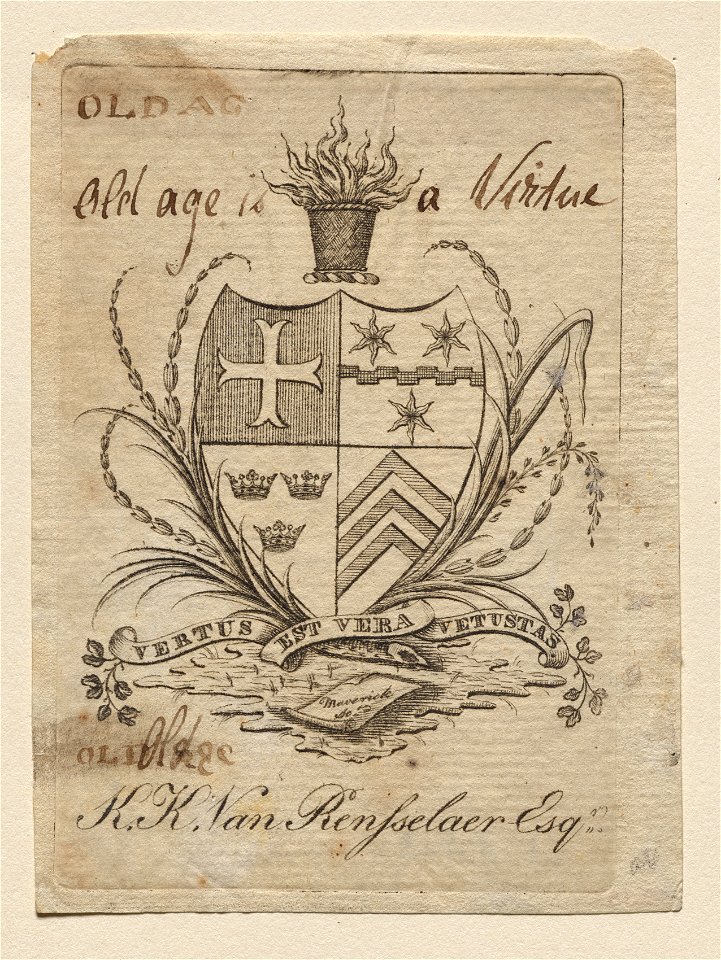 OLD AG
Old age is a Virtue
VERTUS EST VERA VETUSTAS
Maverick Sc.
Old age
K. K. Van Renſselaer Esqr.